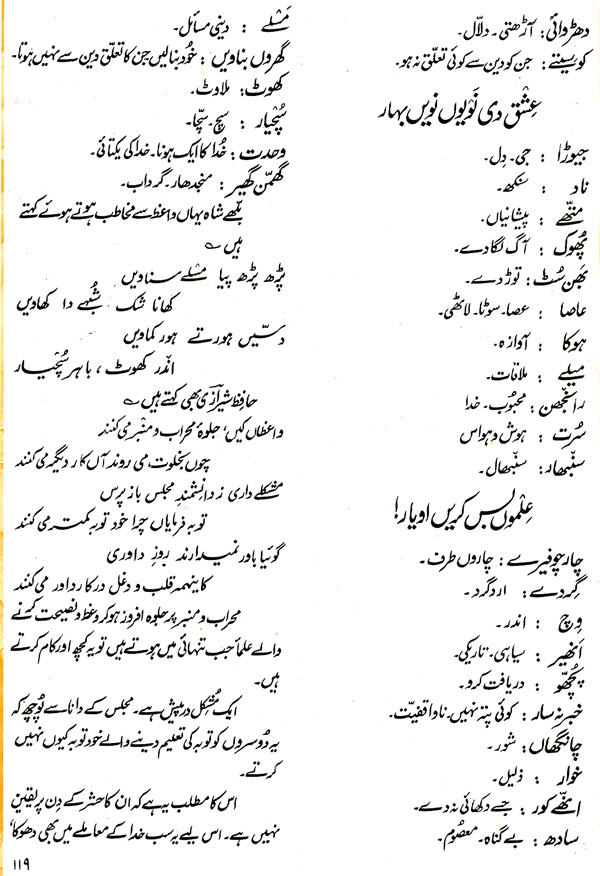 دھڑوائی: آڑھتی۔ دلاّل۔
کوسیتے: جن کو دین سے کوئی تعلق نہ ہو۔
عِشق دی نَویوں نویں بہار
جیوڑا : جی۔ دِل۔
ناد : سنکھ۔
متّھے : پیشانیاں۔
پُھوک : آگ لگا دے۔
بَھن سُٹ : توڑ دے۔
عاصا : عصا۔ سوٹا۔ لاٹھی۔
ہوکا : آوازہ۔
میلے : ملاقات۔
رانجھن : محبُوب۔ خدا
سُرت : ہوش و ہواس
سنبھار : سنبھال۔
عِلموں بس کریں او یار!
چار چوفیرے : چاروں طرف۔
گردے : ارد گرد۔
وچ : اندر۔
اَنھیر : سیاہی۔ تاریکی۔
پُچھّو : دریافت کرو۔
خبر نہ سار : کوئی پتہ نہیں۔ ناواقفیّت۔
چانگھاں : شور۔
خوار : ذلیل۔
انھّے کور : جسے دکھائی نہ دے۔
سادھ : بے گناہ۔ معصُوم۔
مَسٔلے : دینی مسائل۔
گھروں بناویں : خُود بنا لیں جن کا تعلق دین سے نہیں ہوتا۔
کھوٹ : ملاوٹ۔
سُچیار : سچ۔ سچّا۔
وحدت : خُدا کا ایک ہونا۔ خدا کی یکتائی۔
گھمّن گھیر : منجدھار۔ گرداب۔
بلّھے شاہ یہاں واعظ سے مخاطب ہوتے ہوئے کہتے
ہیں ؎
پڑھ پڑھ پیا مسٔلے سناویں
کھانا شک شُبہے دا کھاویں
دسّیں ہور تے ہور کماویں
انّدر کھوٹ ، باہر سُچیار
حافظ شیرازی بھی کہتے ہیں ؎
واعظاں کیں، جلوۂ محراب و منبر می کنند
چوں بخلوت می روند آں کار دیگر می کنند
مشکلے داری ز دانشمندِ مجلس باز پرس
توبہ فرمایاں چرا خود توبہ کمتر می کنند
گوئیا باور نمیدارند روزِ داوری
کاینہمہ قلب و دغل در کار داور می کنند
محراب و منبر پر جلوہ افروز ہو کر وعظ و نصیحت کرنے
والے علمأ جب تنہائی میں ہوتے ہیں تو یہ کچھ اور کام کرتے
ہیں۔
ایک مُشکل درپیش ہے۔ مجلس کے دانا سے پُوچھ کہ
یہ دُوسروں کو توبہ کی تعلیم دینے والے خود توبہ کیوں نہیں
کرتے۔
اس کا مطلب یہ ہے کہ ان کا حشر کے دِن پر یقین
نہیں ہے۔ اس لیے یہ سب خدا کے معاملے میں بھی دھوکا،
۱۱۹